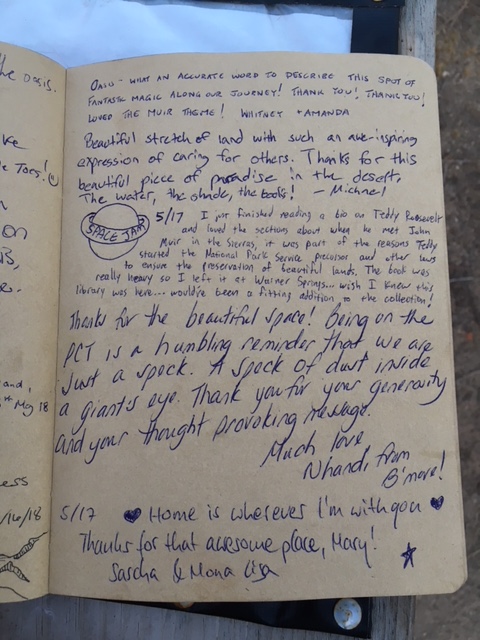 the OASIS.
ke
e Toes!
on
s,
e.
and,
th May 18
ess
/16/18
OASIS - WHAT AN ACCURATE WORD TO DESCRIBE THIS SPOT OF
FANTASTIC MAGIC ALONG OUR JOURNEY! THANK YOU! THANK YOU!
LOVED THE MUIR THEME! WHITNEY + AMANDA
Beautiful stretch of land with such an awe-inspiring
expression of caring for others. Thanks for this
beautiful piece of paradise in the desert.
The water, the shade, the books! - Michael
SPACE JAM
5/17 I just finished reading a bio on Teddy Roosevelt
and loved the sections about when he met John
Muir in the Sierras, it was part of the reasons Teddy
started the National Park Service precursor and other laws
to ensure the preservation of beautiful lands. The book was
really heavy so I left it at Warner Springs... wish I knew this
library was here... would've been a fitting addition to the collection!
Thanks for the beautiful space! Being on the
PCT is a humbling reminder that we are
just a speck. A speck of dust inside
a giant's eye. Thank you for your generosity
and your thought provoking message.
Much love
Nhandi from
B'more!
5/17 ♥ Home is wherever I'm with you ♥
Thanks for that awesome place, Mary!
Sascha & Mona Lisa